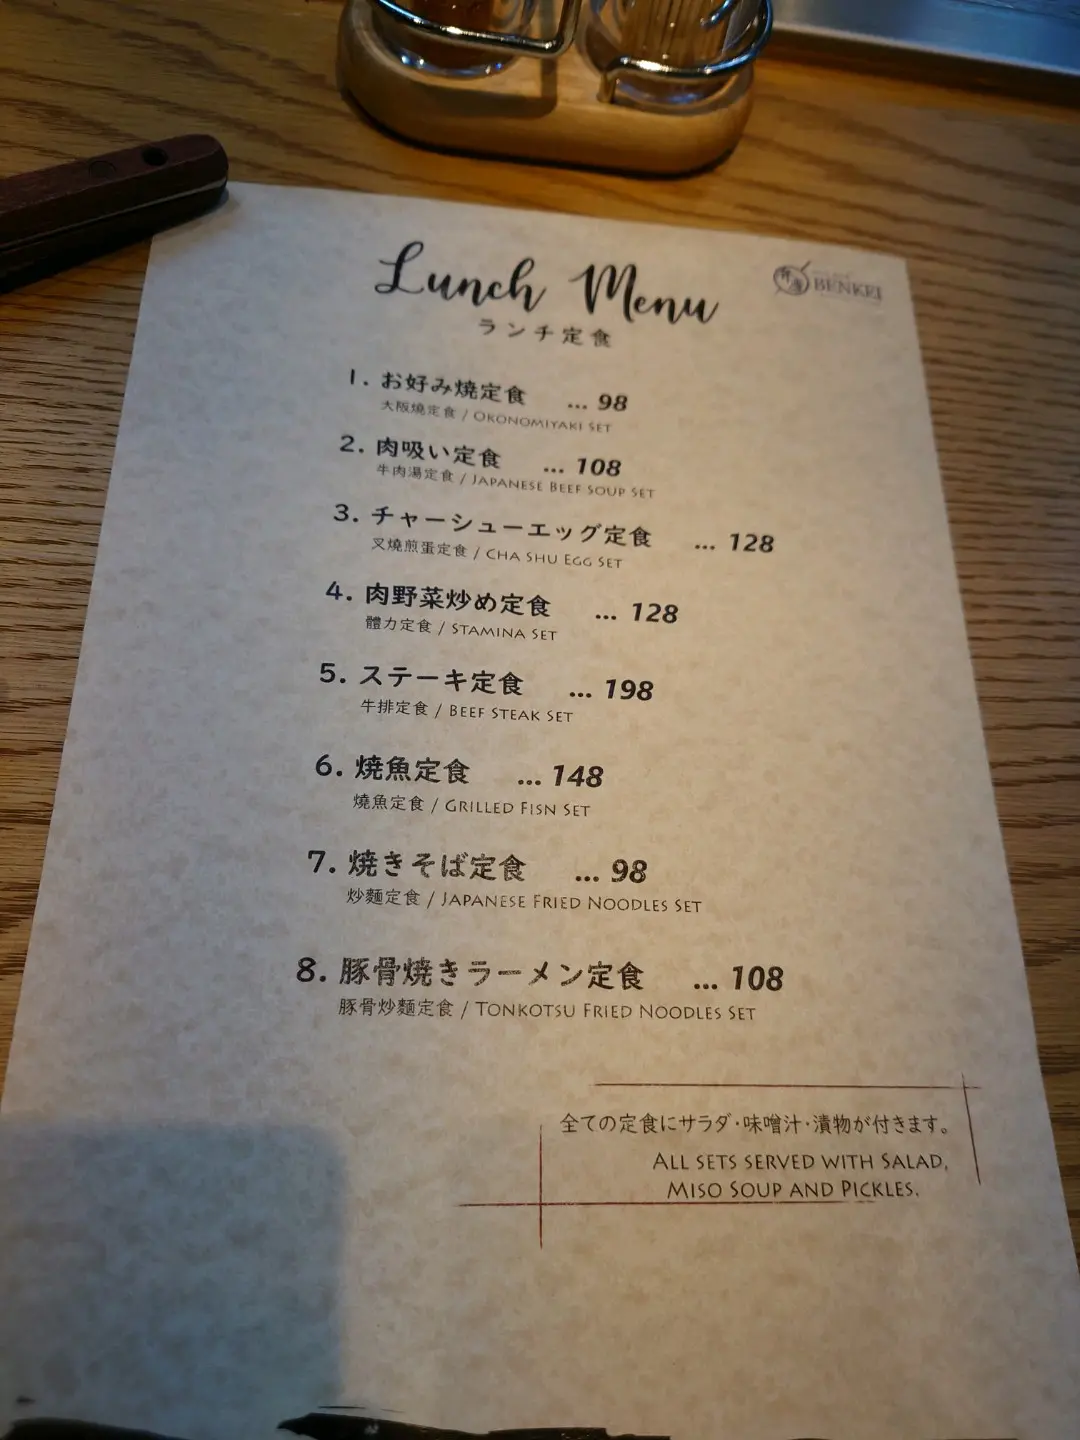 Lunch Menu
BENKEI
ランチ定食
1. お好み焼定食 ... 98
大阪燒定食 / OKONOMIYAKI SET
2. 肉吸い定食 ... 108
牛肉湯定食 / JAPANESE BEEF SOUP SET
3. チャーシューエッグ定食 ... 128
叉燒煎蛋定食 / CHA SHU EGG SET
4. 肉野菜炒め定食 ... 128
體力定食 / STAMINA SET
5. ステーキ定食 ... 198
牛排定食 / BEEF STEAK SET
6. 焼魚定食 ... 148
燒魚定食 / GRILLED FISN SET
7. 焼きそば定食 ... 98
炒麵定食 / JAPANESE FRIED NOODLES SET
8. 豚骨焼きラーメン定食 ... 108
豚骨炒麵定食 / TONKOTSU FRIED NOODLES SET
全ての定食にサラダ・味噌汁・漬物が付きます。
ALL SETS SERVED WITH SALAD,
MISO SOUP AND PICKLES.